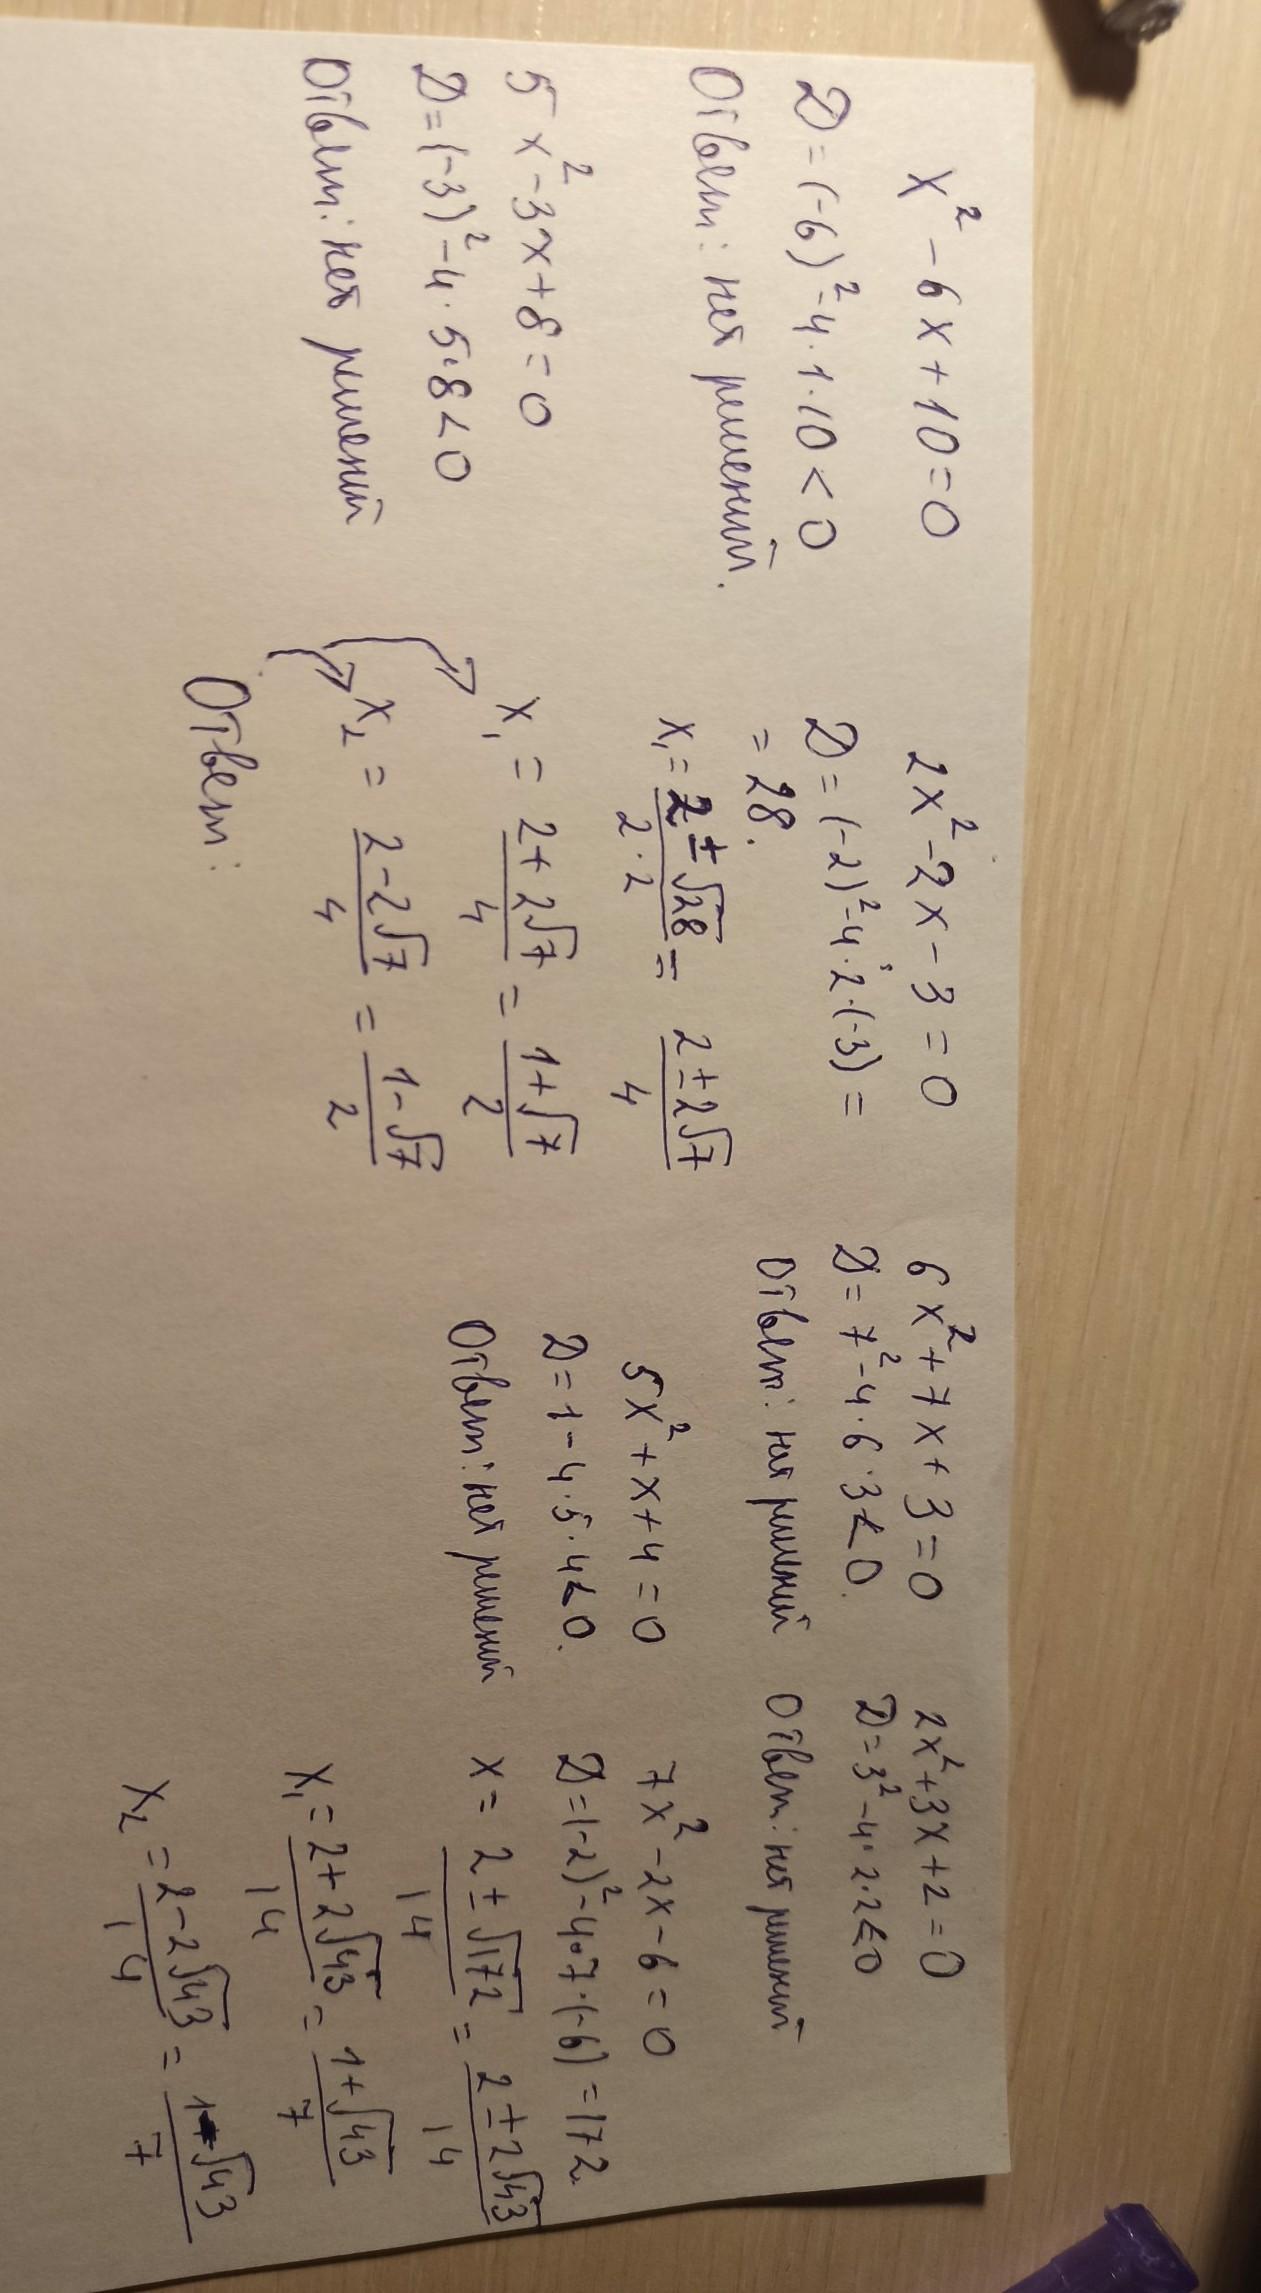 x² - 6x + 10 = 0
D = (-6)² - 4 · 1 · 10 < 0
Ответ: нет решений.
5x² - 3x + 8 = 0
D = (-3)² - 4 · 5 · 8 < 0
Ответ: нет решений
2x² - 2x - 3 = 0
D = (-2)² - 4 · 2 · (-3) =
= 28.
x₁ = (2 ± √28)/(2 · 2) = (2 ± 2√7)/4
x₁ = (2 + 2√7)/4 = (1 + √7)/2
x₂ = (2 - 2√7)/4 = (1 - √7)/2
Ответ:
6x² + 7x + 3 = 0
D = 7² - 4 · 6 · 3 < 0.
Ответ: нет решений
5x² + x + 4 = 0
D = 1 - 4 · 5 · 4 < 0.
Ответ: нет решений
2x² + 3x + 2 = 0
D = 3² - 4 · 2 · 2 < 0
Ответ: нет решений
7x² - 2x - 6 = 0
D = (-2)² - 4 · 7 · (-6) = 172
x = (2 ± √172)/14 = (2 ± 2√43)/14
x₁ = (2 + 2√43)/14 = (1 + √43)/7
x₂ = (2 - 2√43)/14 = (1 - √43)/7